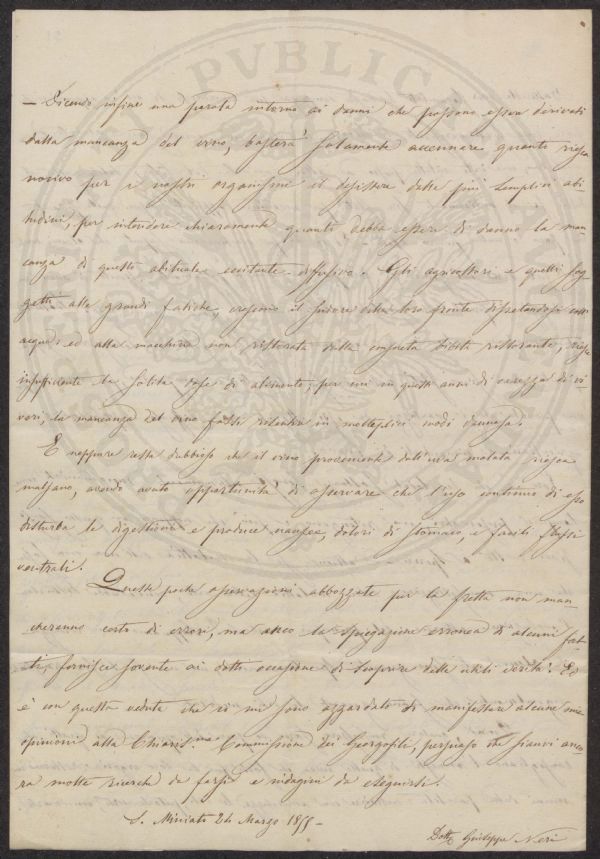 – Dicendo infine una parola intorno ai danni che possono esser derivati
dalla mancanza del vino, basterà solamente accennare quanto riesca
nocivo per i nostri organismi il desistere dalle più semplici abi-
tudini, per intendere chiaramente quanto debba essere di danno la man-
canza di questo abituale eccitante diffusivo. Gli agricoltori e quelli sog-
getti alle grandi fatiche, crescono il sudore della loro fronte dissetandosi coll'
acqua, ed alla macchina non ristorata dalla consueta bibita ristorante, riesce
insufficiente la solita dose di alimenti; per cui in questi anni di carezza di vi-
veri, la mancanza del vino fassi risentire in molteplici modi dannosa.
E neppure resta dubbioso che il vino proveniente dall'uva malata riesca
malsano, avendo avuto opportunità di osservare che l'uso continuo di esso
disturba le digestioni e produce nausee, dolori di stomaco, e facili flussi
ventrali.
Queste poche osservazioni abbozzate per la fretta non man-
cheranno certo di errori, ma anco la spiegazione erronea di alcuni fat-
ti, fornisce sovente ai dotti occasione di scuoprire delle utili verità. Ed
è con questa veduta che io mi sono azzardato di manifestare alcune mie
opinioni alla Chiariss.ma Commissione dei Georgofili, persuaso che sianvi anco-
ra molte ricerche da farsi e indagini da eseguirsi.
S. Miniato 24 Marzo 1855 –
Dott. Giuseppe Neri
PVBLIC